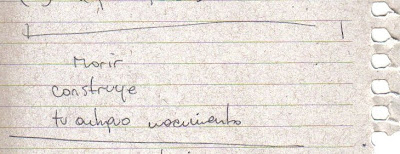 Morir
construye
tu antiguo nacimiento